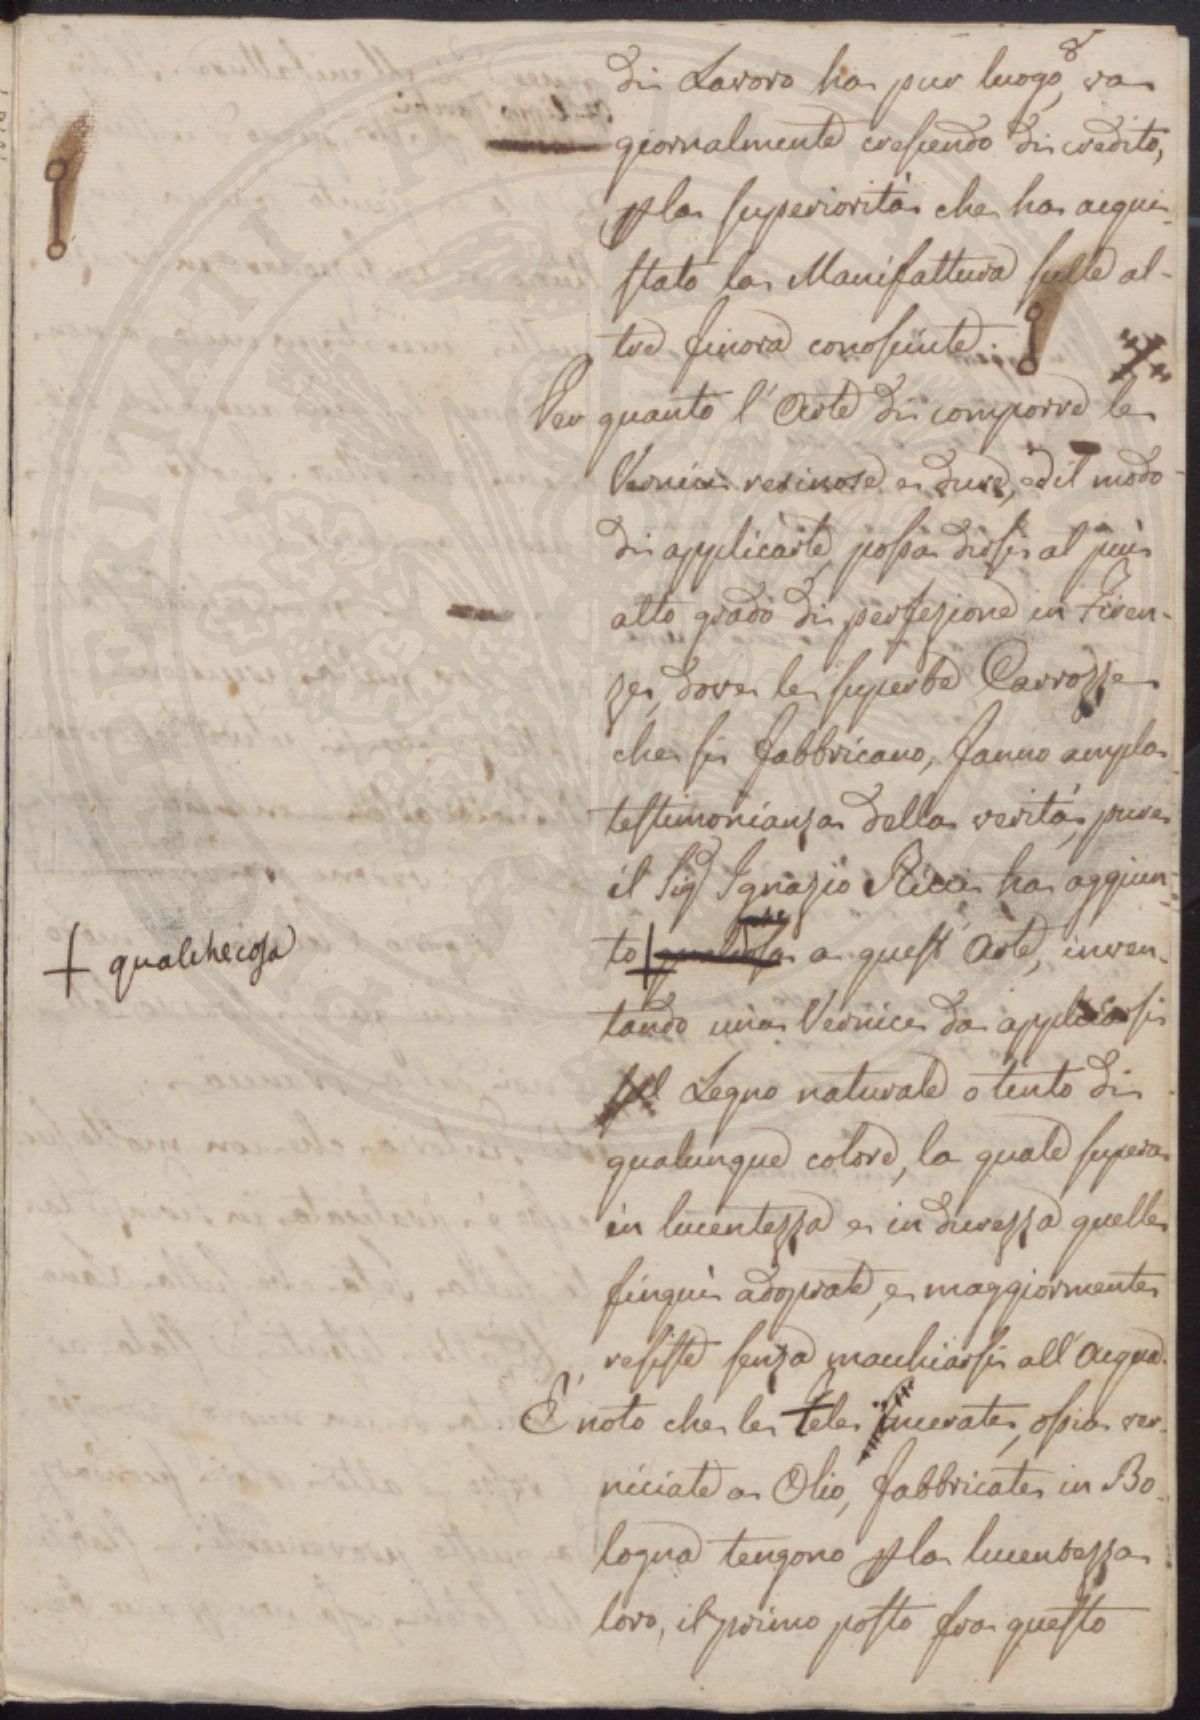 8
di Lavoro ha pur luogo, va
giornalmente crescendo di credito,
p la superiorità che ha acqui-
stato la Manifattura sulle al-
tre finora conosciute.
Per quanto l'Arte di comporre le
Vernici resinose e dure, ed il modo
di applicarle, possa dirsi al più
alto grado di perfezione in Firen-
ze, dove le superbe Carrozze
che si fabbricano, fanno ampla
testimonianza della verità, pure
il Sig.r Ignazio Ricci ha aggiun-
to a quest'Arte, inven-
+ qualchecosa
tando una Vernice da applicarsi
sul Legno naturale o tinto di
qualunque colore, la quale supera
in lucentezza e in durezza quelle
finquì adoprate, e maggiormente
resiste senza macchiarsi all'Acqua.
È noto che le tele incerate, ossia ver-
niciate a Olio, fabbricate in Bo-
logna tengono p la lucentezza
loro, il primo posto fra questo